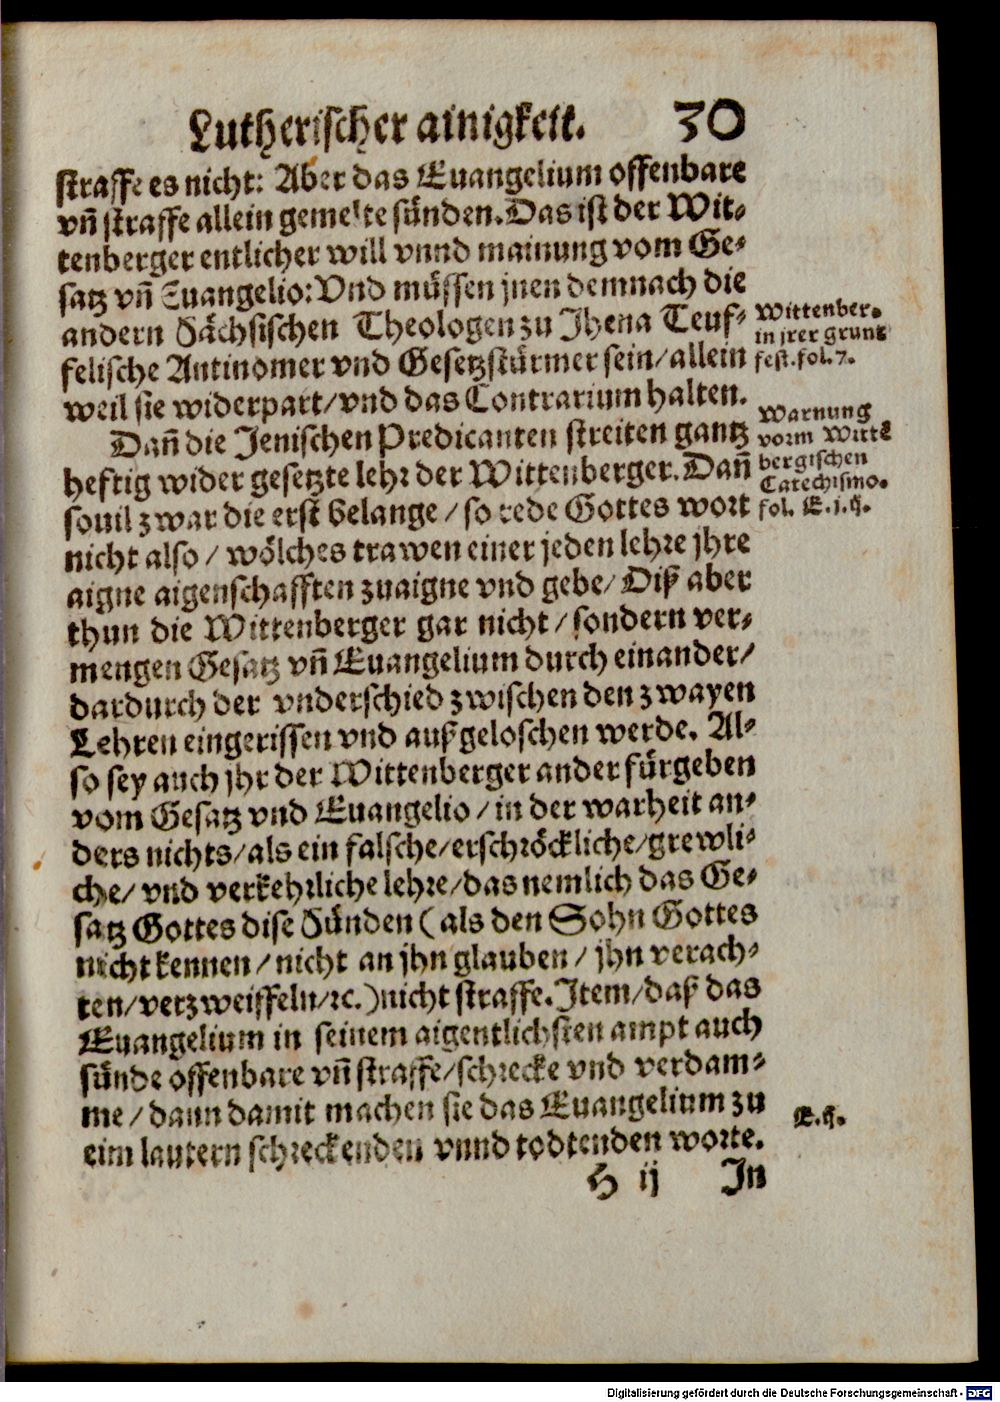 Lutherischer ainigkeit. 30
straffe es nicht: Aber das Euangelium offenbare
vñ straffe allein gemelte sünden. Das ist der Wit-
tenberger entlicher will vnnd mainung vom Ge-
satz vñ Euangelio: Vnd müssen jnen demnach die
andern Sächsischen Theologen zu Jhena Teuf-
felische Antinomer vnd Gesetzstürmer sein/ allein
weil sie widerpart/ vnd das Contrarium halten.
Wittenber.
in jrer grunt
fest. fol. 7.
Dañ die Jenischen Predicanten streiten gantz
heftig wider gesetzte lehr der Wittenberger. Dañ
souil zwar die erst belange / so rede Gottes wort
nicht also / wölches trawen einer jeden lehre jhre
aigne aigenschafften zuaigne vnd gebe/ Diß aber
thun die Wittenberger gar nicht / sondern ver-
mengen Gesatz vñ Euangelium durch einander/
dardurch der vnderschied zwischen den zwayen
Lehren eingerissen vnd außgeloschen werde. Al-
so sey auch jhr der Wittenberger ander fürgeben
vom Gesatz vnd Euangelio / in der warheit an-
ders nichts/ als ein falsche/ erschröckliche/ grewli-
che/ vnd verkehrliche lehre/ das nemlich das Ge-
satz Gottes dise Sünden ( als den Sohn Gottes
nicht kennen / nicht an jhn glauben / jhn verach-
ten/ verzweiffeln/ ꝛc.) nicht straffe. Item/ daß das
Euangelium in seinem aigentlichsten ampt auch
sünde offenbare vñ straffe/ schrecke vnd verdam-
me / dann damit machen sie das Euangelium zu
eim lautern schreckenden vnnd todtenden worte.
Warnung
vorm Witt-
bergischen
Catechismo.
fol. E. j. ij.
E. ij.
H ij In
Digitalisierung gefördert durch die Deutsche Forschungsgemeinschaft - DFG